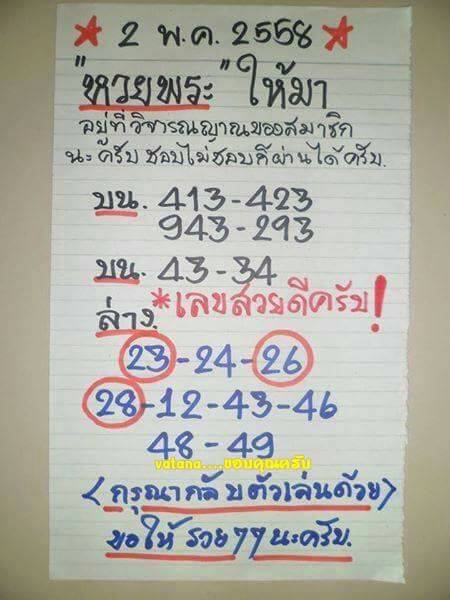 ★ 2 พ.ค. 2558 ★
"หวยพระ" ให้มา
อยู่ที่วิจารณญาณของสมาชิก
นะครับ ชอบไม่ชอบก็ผ่านได้ครับ.
บน. 413-423
943-293
บน. 43-34
ล่าง. *เลขสวยดีครับ!
23-24-26
28-12-43-46
48-49
vatana....ขอบคุณครับ
<กรุณากลับตัวเล่นด้วย>
ขอให้ รวยๆๆ นะครับ.